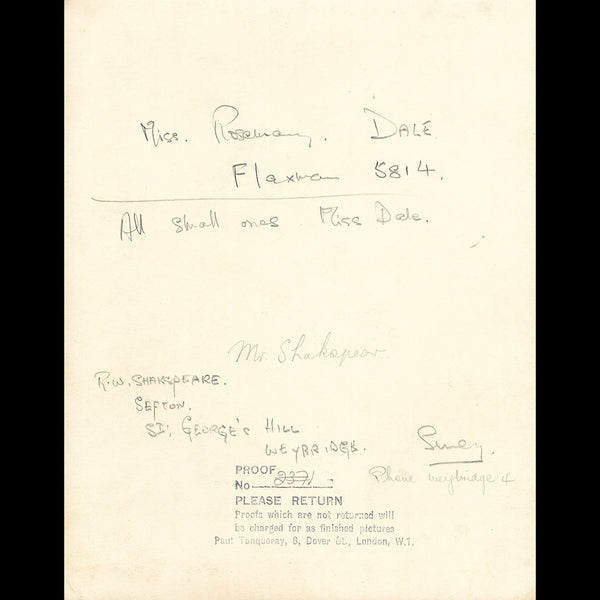 Miss. Rosemary. DALE
Flaxman 5814.
All small ones Miss Dale.
Mr. Shakspear.
R.W. SHAKSPEARE.
SEFTON.
ST; GEORGE'S HILL
WEYBRIDGE.
Surrey.
Phone weybridge 4
PROOF
No 2371
PLEASE RETURN
Proofs which are not returned will
be charged for as finished pictures
Paul Tanqueray, 8, Dover St., London, W.1.